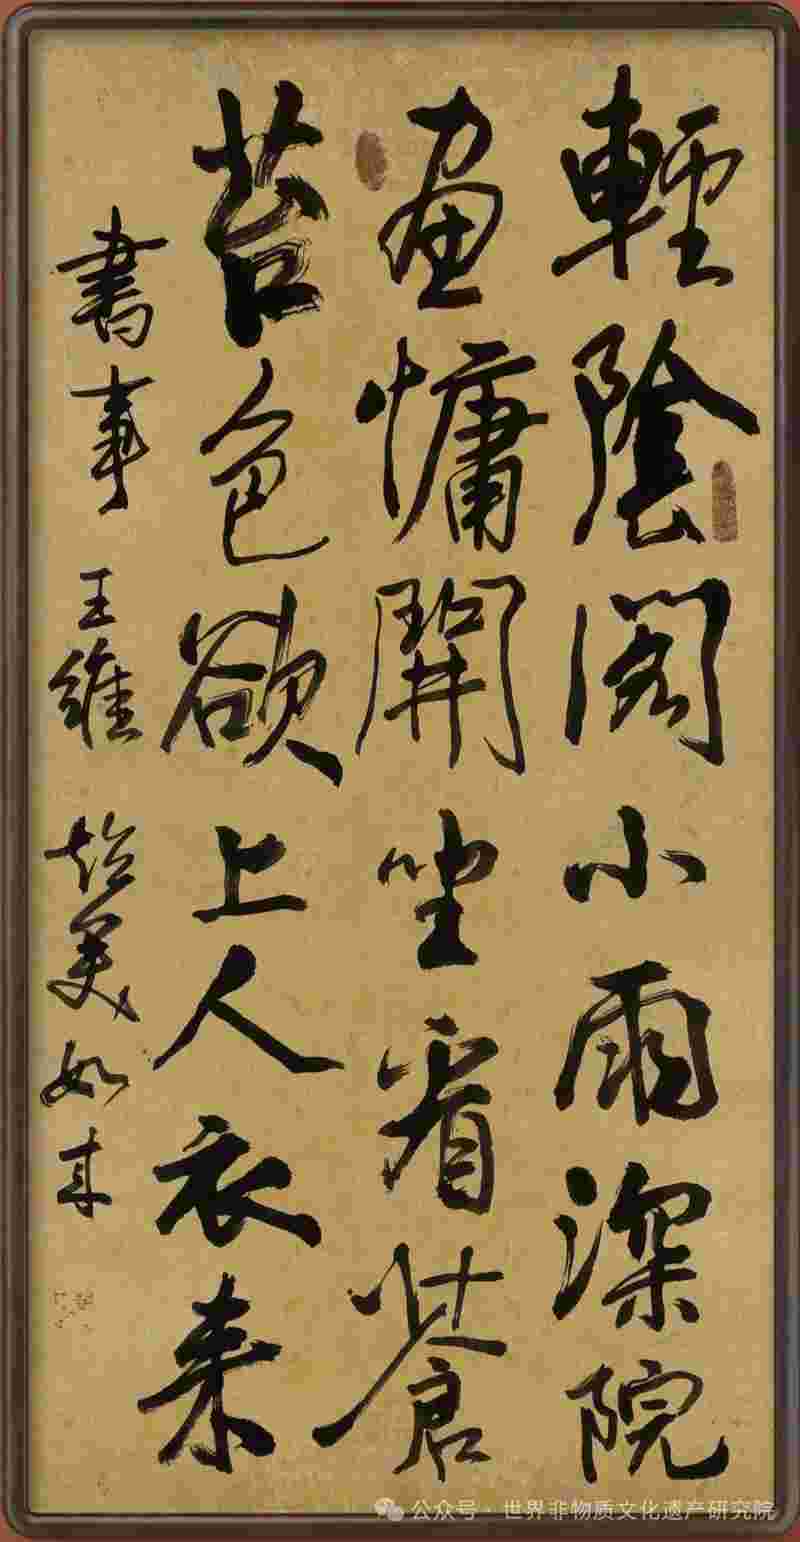 輕陰閣小雨深院
晝慵開坐看蒼
苔色欲上人衣来
書事 王維 美如
公众号·世界非物质文化遗产研究院